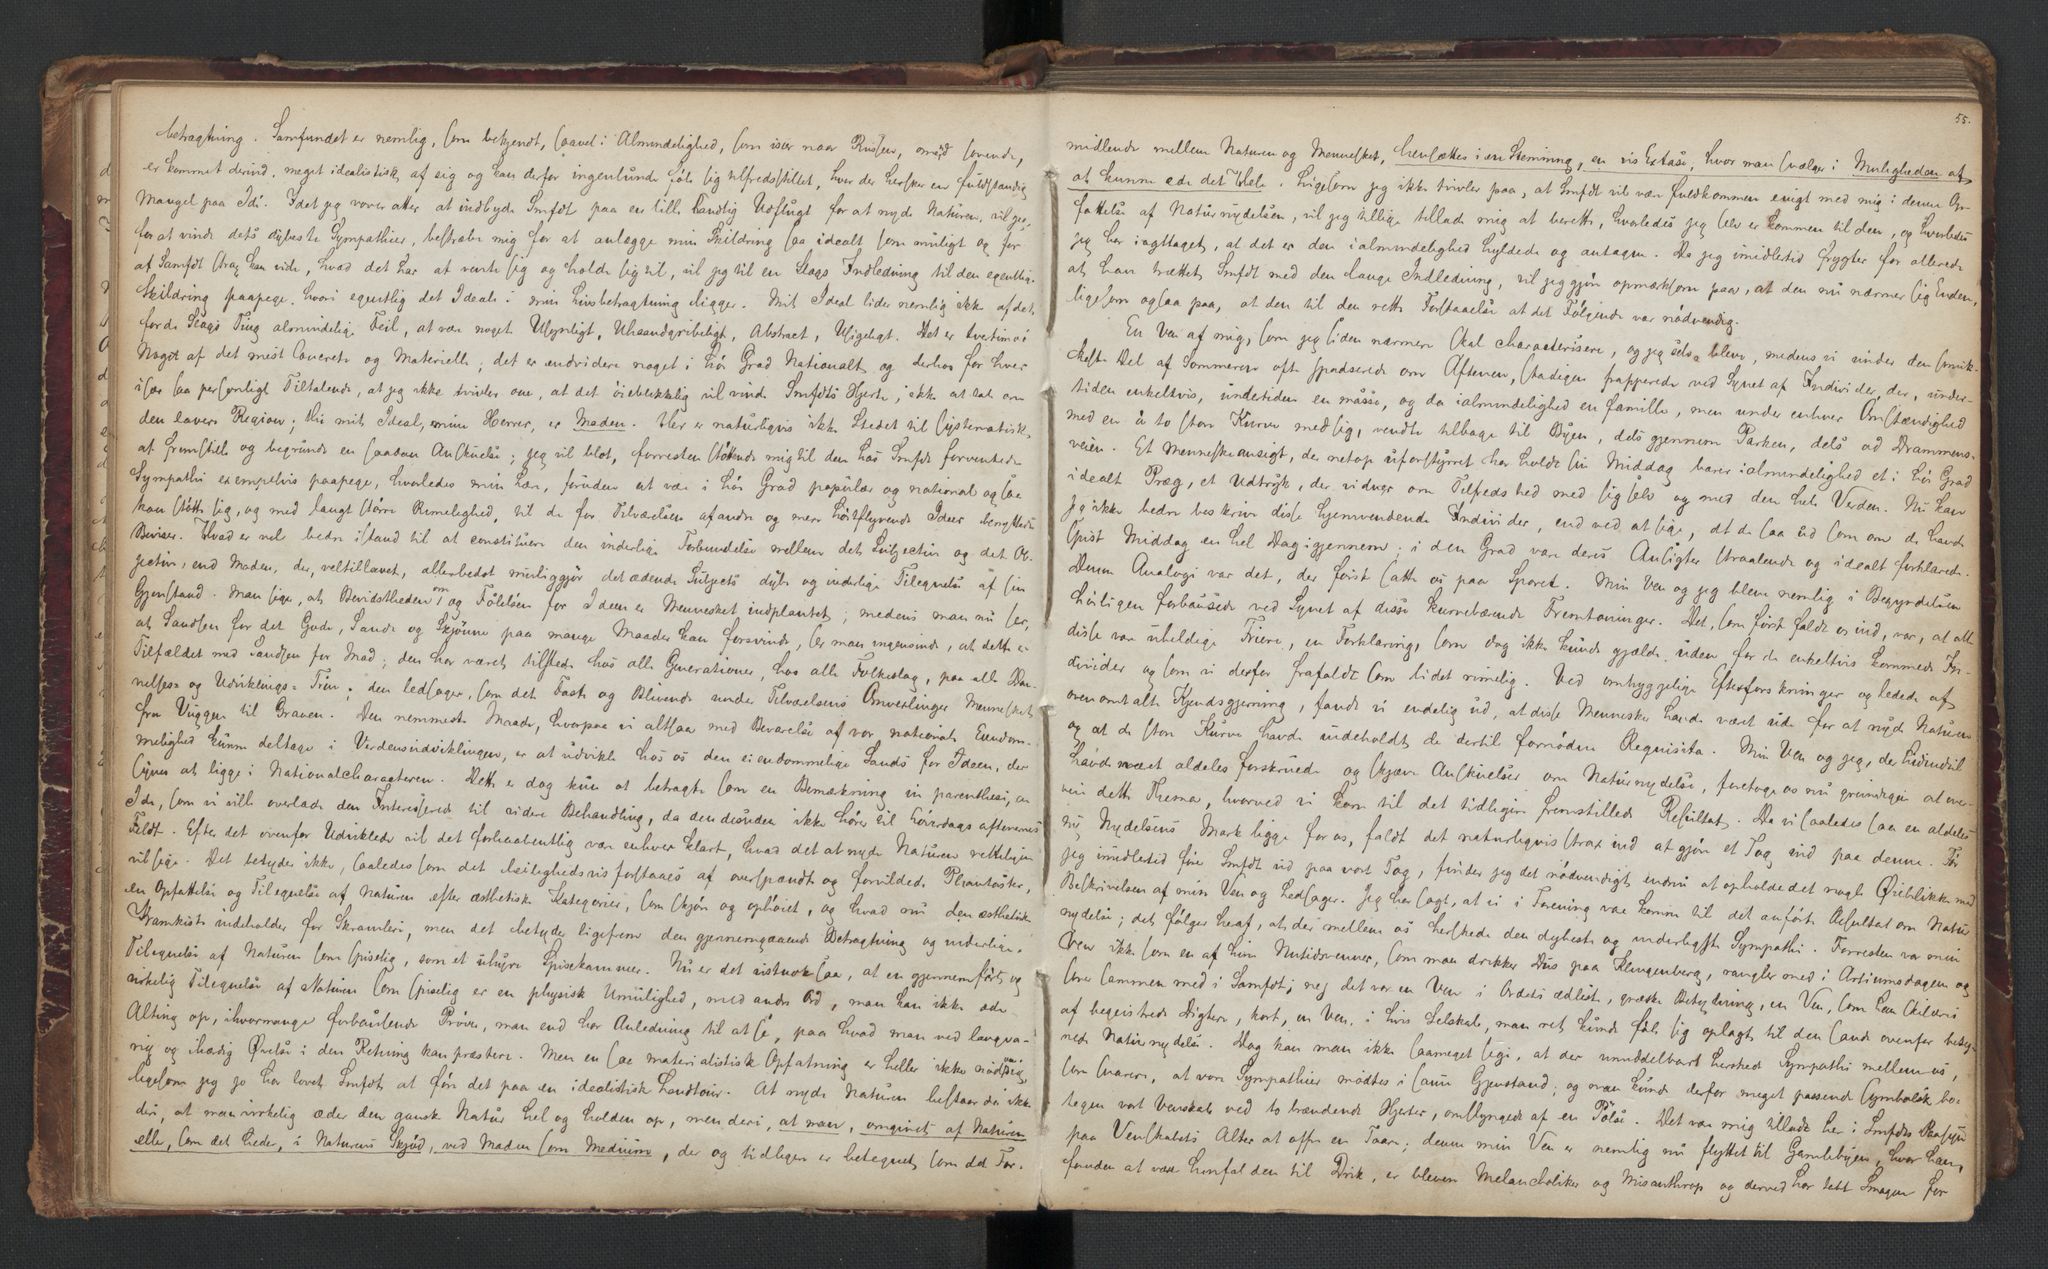 betragtning. Samfundet er nemlig, som bekjendt, saavel i Almindelighed, som især naar Russen, omsid sovende,
er kommet derind, meget idealistisk af sig og kan derfor ingenlunde føle sig tilfredsstillet, hvor der hersker en fuldstændig
Mangel paa Idé. Idet jeg vover atter at indbyde Smfdt paa en lille landlig Udflugt for at nyde Naturen, vil jeg,
for at vinde dets dybeste Sympathier, bestræbe mig for at anlægge min Skildring saa idealt som muligt og for
at Samfdt strax kan vide, hvad det har at vente sig og holde sig til, vil jeg til en Slags Indledning til den egentlige
Skildring paapege, hvori egentlig det Ideale i min Livsbetragtning ligger. Mit Ideal lider nemlig ikke af det,
for de Slags Ting almindelige Feil, at være noget Usynligt, Uhaandgribeligt, Abstract, Usigeligt. Det er tvertimod
Noget af det mest Concrete og Materielle; det er endvidere noget i høi Grad Nationalt og derhos for hver
især saa personligt Tiltalende, at jeg ikke tvivler om, at det öieblikkelig vil vinde Smfdts Hjerte, ikke at tale om
den lavere Region; thi mit Ideal, mine Herrer, er Maden. Her er naturligvis ikke Stedet til systematisk
at fremstille og begrunde en saadan Anskuelse; jeg vil blot, forresten støttende mig til den hos Smfdt forventede
Sympathi exempelvis paapege, hvorledes min Lære, foruden at være i höi Grad populær og national ogsaa
kan støtte sig, og med langt større Rimelighed, til de for Tilværelsen af andre og mere höitflyvende Ideer benyttede
Beviser. Hvad er vel bedre istand til at constituere den inderlige Forbindelse mellem det Subjective og det Ob-
jective, end Maden, der, veltillavet, allerbedst muliggjør det ædende Subjects dybe og inderlige Tilegnelse af sin
Gjenstand. Man siger, at Bevidstheden om og Følelsen for Ideen er Mennesket indplantet; medens man nu ser,
at Sandsen for det Gode, Sande og Skjønne paa mange Maader kan forsvinde, ser man ingensinde, at dette er
Tilfældet med Sandsen for Mad; den har været tilstede hos alle Generationer, hos alle Folkeslag, paa alle Dan-
nelses- og Udviklings-Trin; den ledsager, som det Faste og Blivende under Tilværelsens Omvexlinger Mennesket
fra Vuggen til Graven. Den nemmeste Maade, hvorpaa vi altsaa med Bevarelse af vor nationale Eiendom-
melighed kunne deltage i Verdensudviklingen, er at udvikle hos os den eiendommelige Sands for Ideen, der
synes at ligge i Nationalcharacteren. Dette er dog kun at betragte som en Bemærkning in parenthesi, en
Ide, som vi ville overlade den Interesserede til videre Behandling, da den desuden ikke hører til Löverdags aftenernes
Feldt. Efter det ovenfor Udviklede vil det forhaabentlig være enhver klart, hvad det at nyde Naturen retteligen
vil sige. Det betyder ikke, saaledes som det leilighedsvis forstaaes af overspændte og forvildede Phantaster,
en Opfattelse og Tilegnelse af Naturen efter æsthetiske Kategorier, som skjøn og ophöiet, og hvad nu den æsthetiske
Kramkiste indeholder for Skramleri, men det betyder ligefrem den gjennemgaaende Betragtning og inderlige
Tilegnelse af Naturen som spiselig, som et uhyre Spisekammer. Nu er det vistnok saa, at en gjennemført og
virkelig Tilegnelse af Naturen som spiselig er en physisk Umulighed, med andre Ord, man kan ikke æde
Alting op, ihvormange forbausende Prøver, man end har Anledning til at se, paa hvad man ved langva-
rig og ihærdig Øvelse i den Retning kan præstere. Men en saa materialistisk Opfatning er heller ikke nødvendig,
ligesom jeg jo har lovet Smfdt, at føre det paa en idealistisk Landtour. At nyde Naturen bestaar da ikke
deri, at man virkelig æder den ganske Natur hel og holden op, men deri, at man, omgivet af Naturen
eller, som det heder, i Naturens Skjød, ved Maden som Medium, der og tidligere er betegnet som det For-
55.
midlende mellem Naturen og Mennesket, hensættes i en Stemning, en vis Extase, hvor man svælger i Muligheden af
at kunne æde det Hele. Ligesom jeg ikke tvivler paa, at Smfdt vil være fuldkommen enigt med mig i denne Op-
fattelse af Naturnydelsen, vil jeg tillige tillade mig at berette, hvorledes jeg selv er kommen til den, og hvorledes
jeg har iagttaget, at det er den i almindelighed hyldede og antagne. Da jeg imidlertid frygter for allerede
at have trættet Smfdt med den lange Indledning, vil jeg gjøre opmærksom paa, at den nu nærmer sig Enden,
ligesom ogsaa paa, at den til den rette Forstaaelse af det Følgende var nødvendig.
En Ven af mig, som jeg siden nærmere skal characterisere, og jeg selv bleve, medens vi under den smuk-
keste Del af Sommeren ofte spadserede om Aftenen, stadigen frapperede ved Synet af Individer, der, under-
tiden enkeltvis, undertiden en masse, og da i almindelighed en famille, men under enhver Omstændighed
med en à to store Kurve med sig, vendte tilbage til Byen, dels gjennem Parken, dels ad Drammens-
veien. Et Menneskeansigt, der netop uforstyrret har holdt sin Middag bærer i almindelighed et i höi Grad
idealt Præg, et Udtryk, der vidner om Tilfredshed med sig selv og med den hele Verden. Nu kan
jeg ikke bedre beskrive disse hjemvendende Individer, end ved at sige, at de saa ud som om de havde
spist Middag en hel Dag igjennem; i den Grad vare deres Ansigter straalende og idealt forklarede.
Denne Analogi var det, der først satte os paa Sporet. Min Ven og jeg bleve nemlig i Begyndelsen
höiligen forbausede ved Synet af disse kurvebærende Fremtoninger. Det, som først faldt os ind, var, at alle
disse var uheldige Friere, en Forklaring, som dog ikke kunde gjælde uden for de enkeltvis kommende In-
divider og som vi derfor frafaldt som lidet rimelig. Ved omhyggelige Efterforskninger og ledede af
ovenomtalte Kjendsgjerning, fandt vi endelig ud, at disse Mennesker havde været ude for at nyde Naturen
og at de store Kurve havde indeholdt de dertil fornødne Requisita. Min Ven og jeg, der hidindtil
havde næret aldeles forskruede og skjæve Anskuelser om Naturnydelse, foretoge os nu grundigen at over-
veie dette Thema, hvorved vi kom til det tidligere fremstillede Resultat. Da vi saaledes saa en aldeles
ny Nydelsens Mark ligge for os, faldt det naturligvis strax ind at gjøre et Tog ind paa denne. Før
jeg imidlertid fører Smfdt ud paa vort Tog, finder jeg det nødvendigt endnu at opholde det nogle Øieblikke med
Beskrivelsen af min Ven og Ledsager. Jeg har sagt, at vi i Forening vare komne til det anførte Resultat om Natur
nydelse; det følger heraf, at der mellem os herskede den dybeste og inderligste Sympathi. Forresten var min
Ven ikke som en af hine Nutidsvenner, som man drikker Dus paa Klingenberg, rangler med i Artiumsdagen og
sover sammen med i Samfdt; nej det var en Ven i Ordets ædleste, græske Betydning, en Ven, som han skildres
af begeistrede Digtere, kort, en Ven, i hvis Selskab, man ret kunde føle sig oplagt til den sande ovenfor beteg-
nede Naturnydelse. Dog kan man ikke saameget sige, at der umiddelbart herskede Sympathi mellem os,
som snarere, at vore Sympathier mødtes i samme Gjenstand; og man kunde derfor meget passende symbolsk be-
tegne vort Venskab ved to brændende Hjerter, omslyngede af en Pölse. Det være mig tilladt her i Smfdts Paasyn
paa Venskabets Alter at offre en Taare; denne min Ven er nemlig nu flyttet til Gamlebyen, hvor han,
foruden at være henfalden til Drik, er bleven Melancholiker og Misanthrop og derved har tabt Smagen for